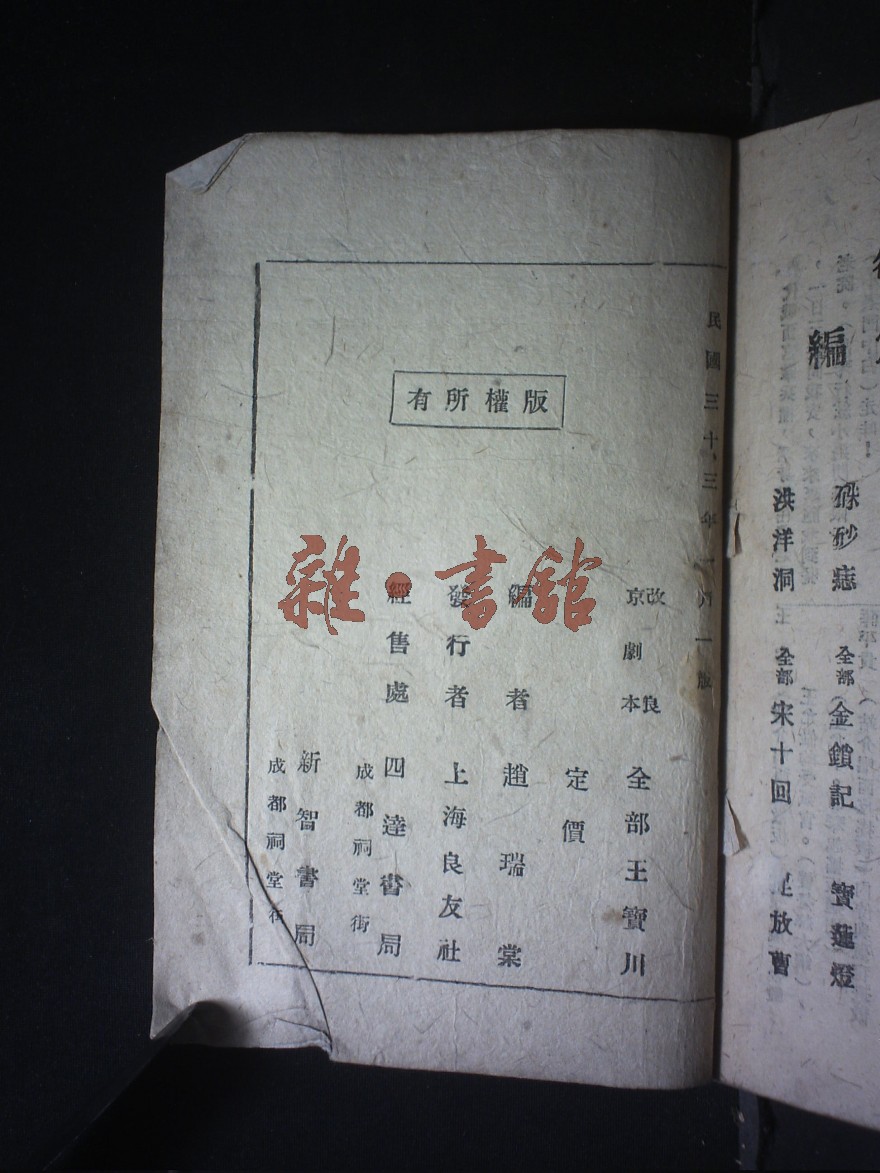 編
硃砂痣 全部金鎖記 寶蓮燈
洪洋洞 全部宋十回 放曹
民國三十三年一月一版
版權所有
改良京劇本 全部王寶川
定價
編者 趙瑞棠
發行者 上海良友社
經售處 四達書局
成都祠堂街
新智書局
成都祠堂街
雜·書館